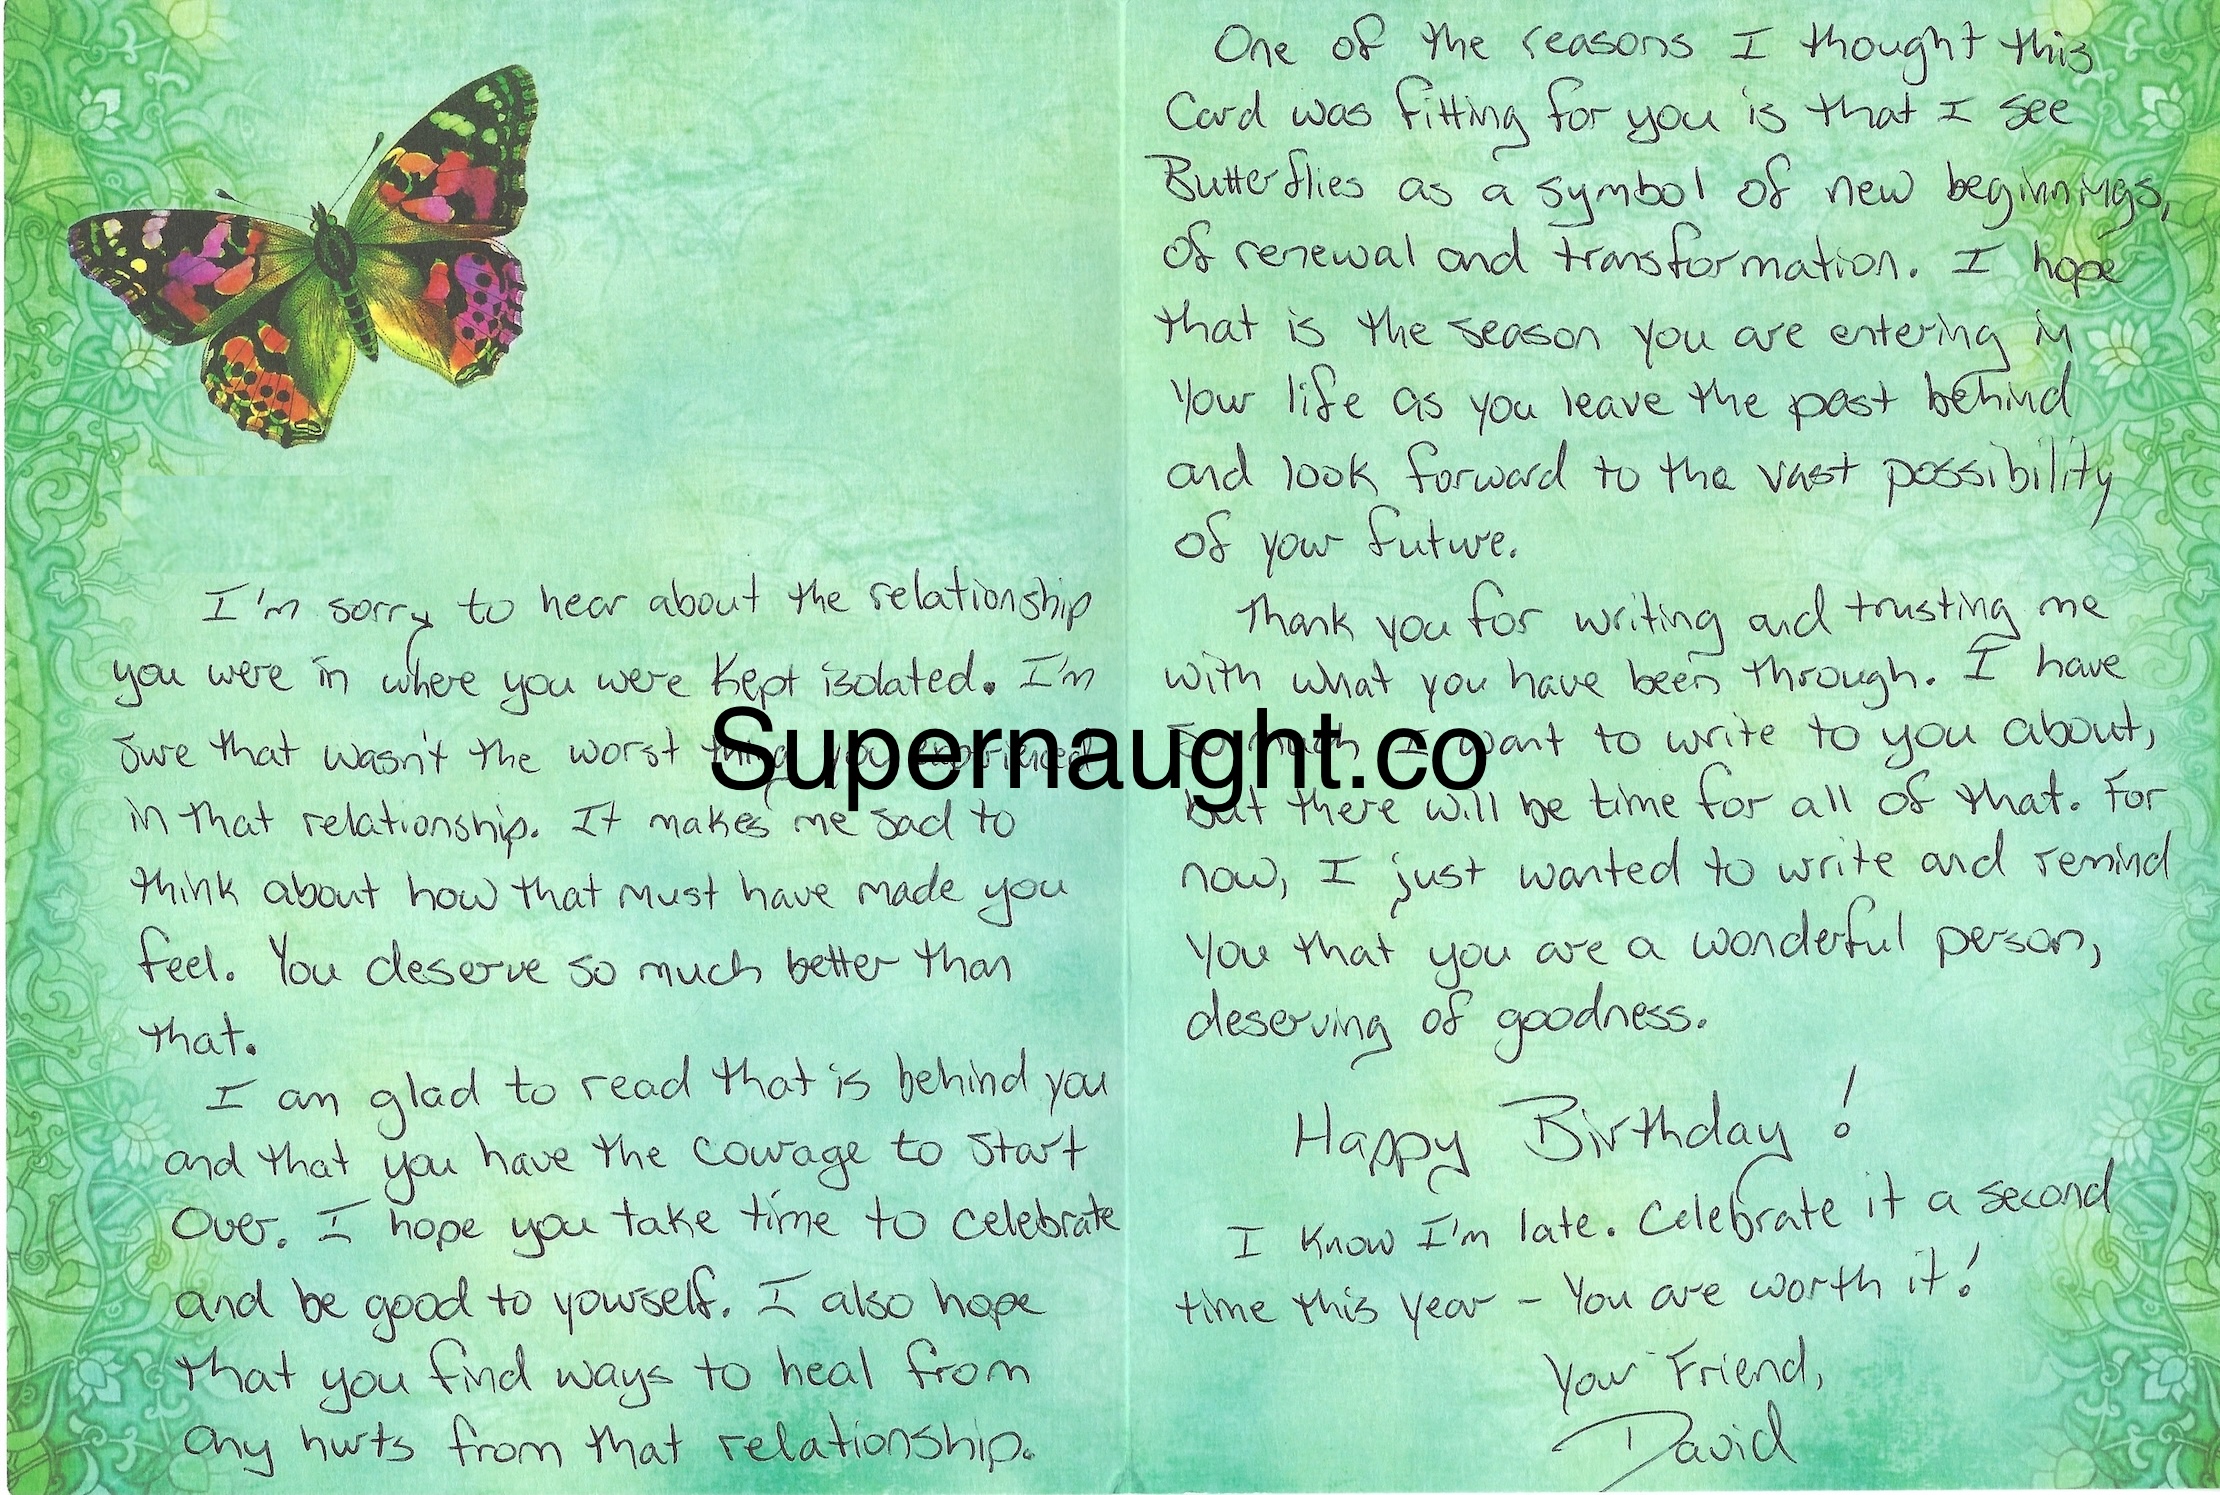 I'm sorry to hear about the relationship
you were in where you were kept isolated. I'm
sure that wasn't the worst thing you experienced
in that relationship. It makes me sad to
think about how that must have made you
feel. You deserve so much better than
that.
I am glad to read that is behind you
and that you have the courage to start
over. I hope you take time to celebrate
and be good to yourself. I also hope
that you find ways to heal from
any hurts from that relationship.
One of the reasons I thought this
Card was fitting for you is that I see
Butterflies as a symbol of new beginnings,
of renewal and transformation. I hope
that is the season you are entering in
your life as you leave the past behind
and look forward to the vast possibility
of your future.
Thank you for writing and trusting me
with what you have been through. I have
so much I want to write to you about,
but there will be time for all of that. For
now, I just wanted to write and remind
you that you are a wonderful person,
deserving of goodness.
Happy Birthday!
I know I'm late. Celebrate it a second
time this year - You are worth it!
Your Friend,
David
Supernaught.co